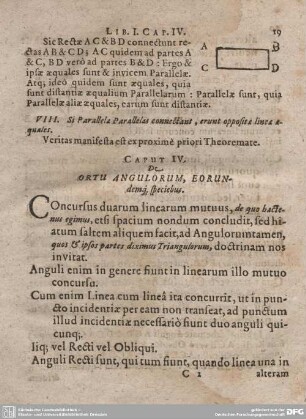 LIB. I. CAP. IV. 19
Sic Rectæ A C & B D connectunt re-
ctas A B & C D; A C quidem ad partes A
& C, B D verò ad partes B & D: Ergo &
ipsæ æquales sunt & invicem Parallelæ.
Atq; ideò quidem sunt æquales, quia
sunt distantiæ æqualium Parallelarum: Parallelæ sunt, quia
Parallelæ aliæ æquales, earum sunt distantiæ.
A B
C D
VIII. Si Parallela Parallelas connectant, erunt oppositæ lineæ æ-
quales.
Veritas manifesta est ex proximè priori Theoremate.
CAPUT IV.
De
ORTU ANGULORUM, EORUN-
demq́; speciebus.
Concursus duarum linearum mutuus, de quo hacte-
nus egimus, etsi spacium nondum concludit, sed hi-
atum saltem aliquem facit, ad Angulorum tamen,
quos & ipsos partes diximus Triangulorum, doctrinam nos
invitat.
Anguli enim in genere fiunt in linearum illo mutuo
concursu.
Cum enim Linea cum lineâ ita concurrit, ut in pun-
cto incidentiæ per eam non transeat, ad punctum
illud incidentiæ necessariò fiunt duo anguli qui-
cunq;.
Iiq; vel Recti vel Obliqui.
Anguli Recti sunt, qui tum fiunt, quando linea una in
C 2 alteram